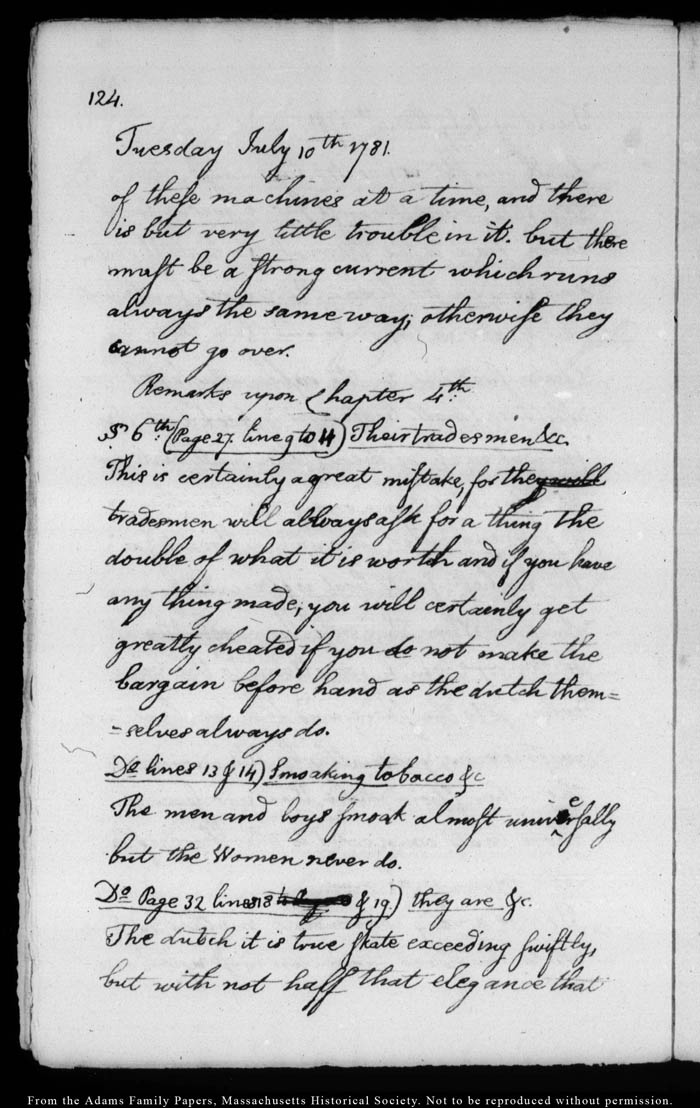 124.
Tuesday July 10th 1781.
of these machines at a time, and there
is but very little trouble in it. but there
must be a strong current which runs
always the same way, otherwise they
cannot go over.
Remarks upon Chapter 4th:
§ 6th: (Page 27. line 9 to 14) Their tradesmen &c.
This is certainly a great mistake, for they will
tradesmen will allways ask for a thing the
double of what it is worth and if you have
any thing made, you will certainly get
greatly cheated if you do not make the
bargain before hand as the dutch them=
=selves always do.
Do lines 13 & 14) Smoaking tobacco &c
The men and boys smoak almost universally
but the Women never do.
Do Page 32 lines 18 & 19.) they are &c.
The dutch it is true skate exceeding swiftly,
but with not half that elegance that
From the Adams Family Papers, Massachusetts Historical Society. Not to be reproduced without permission.